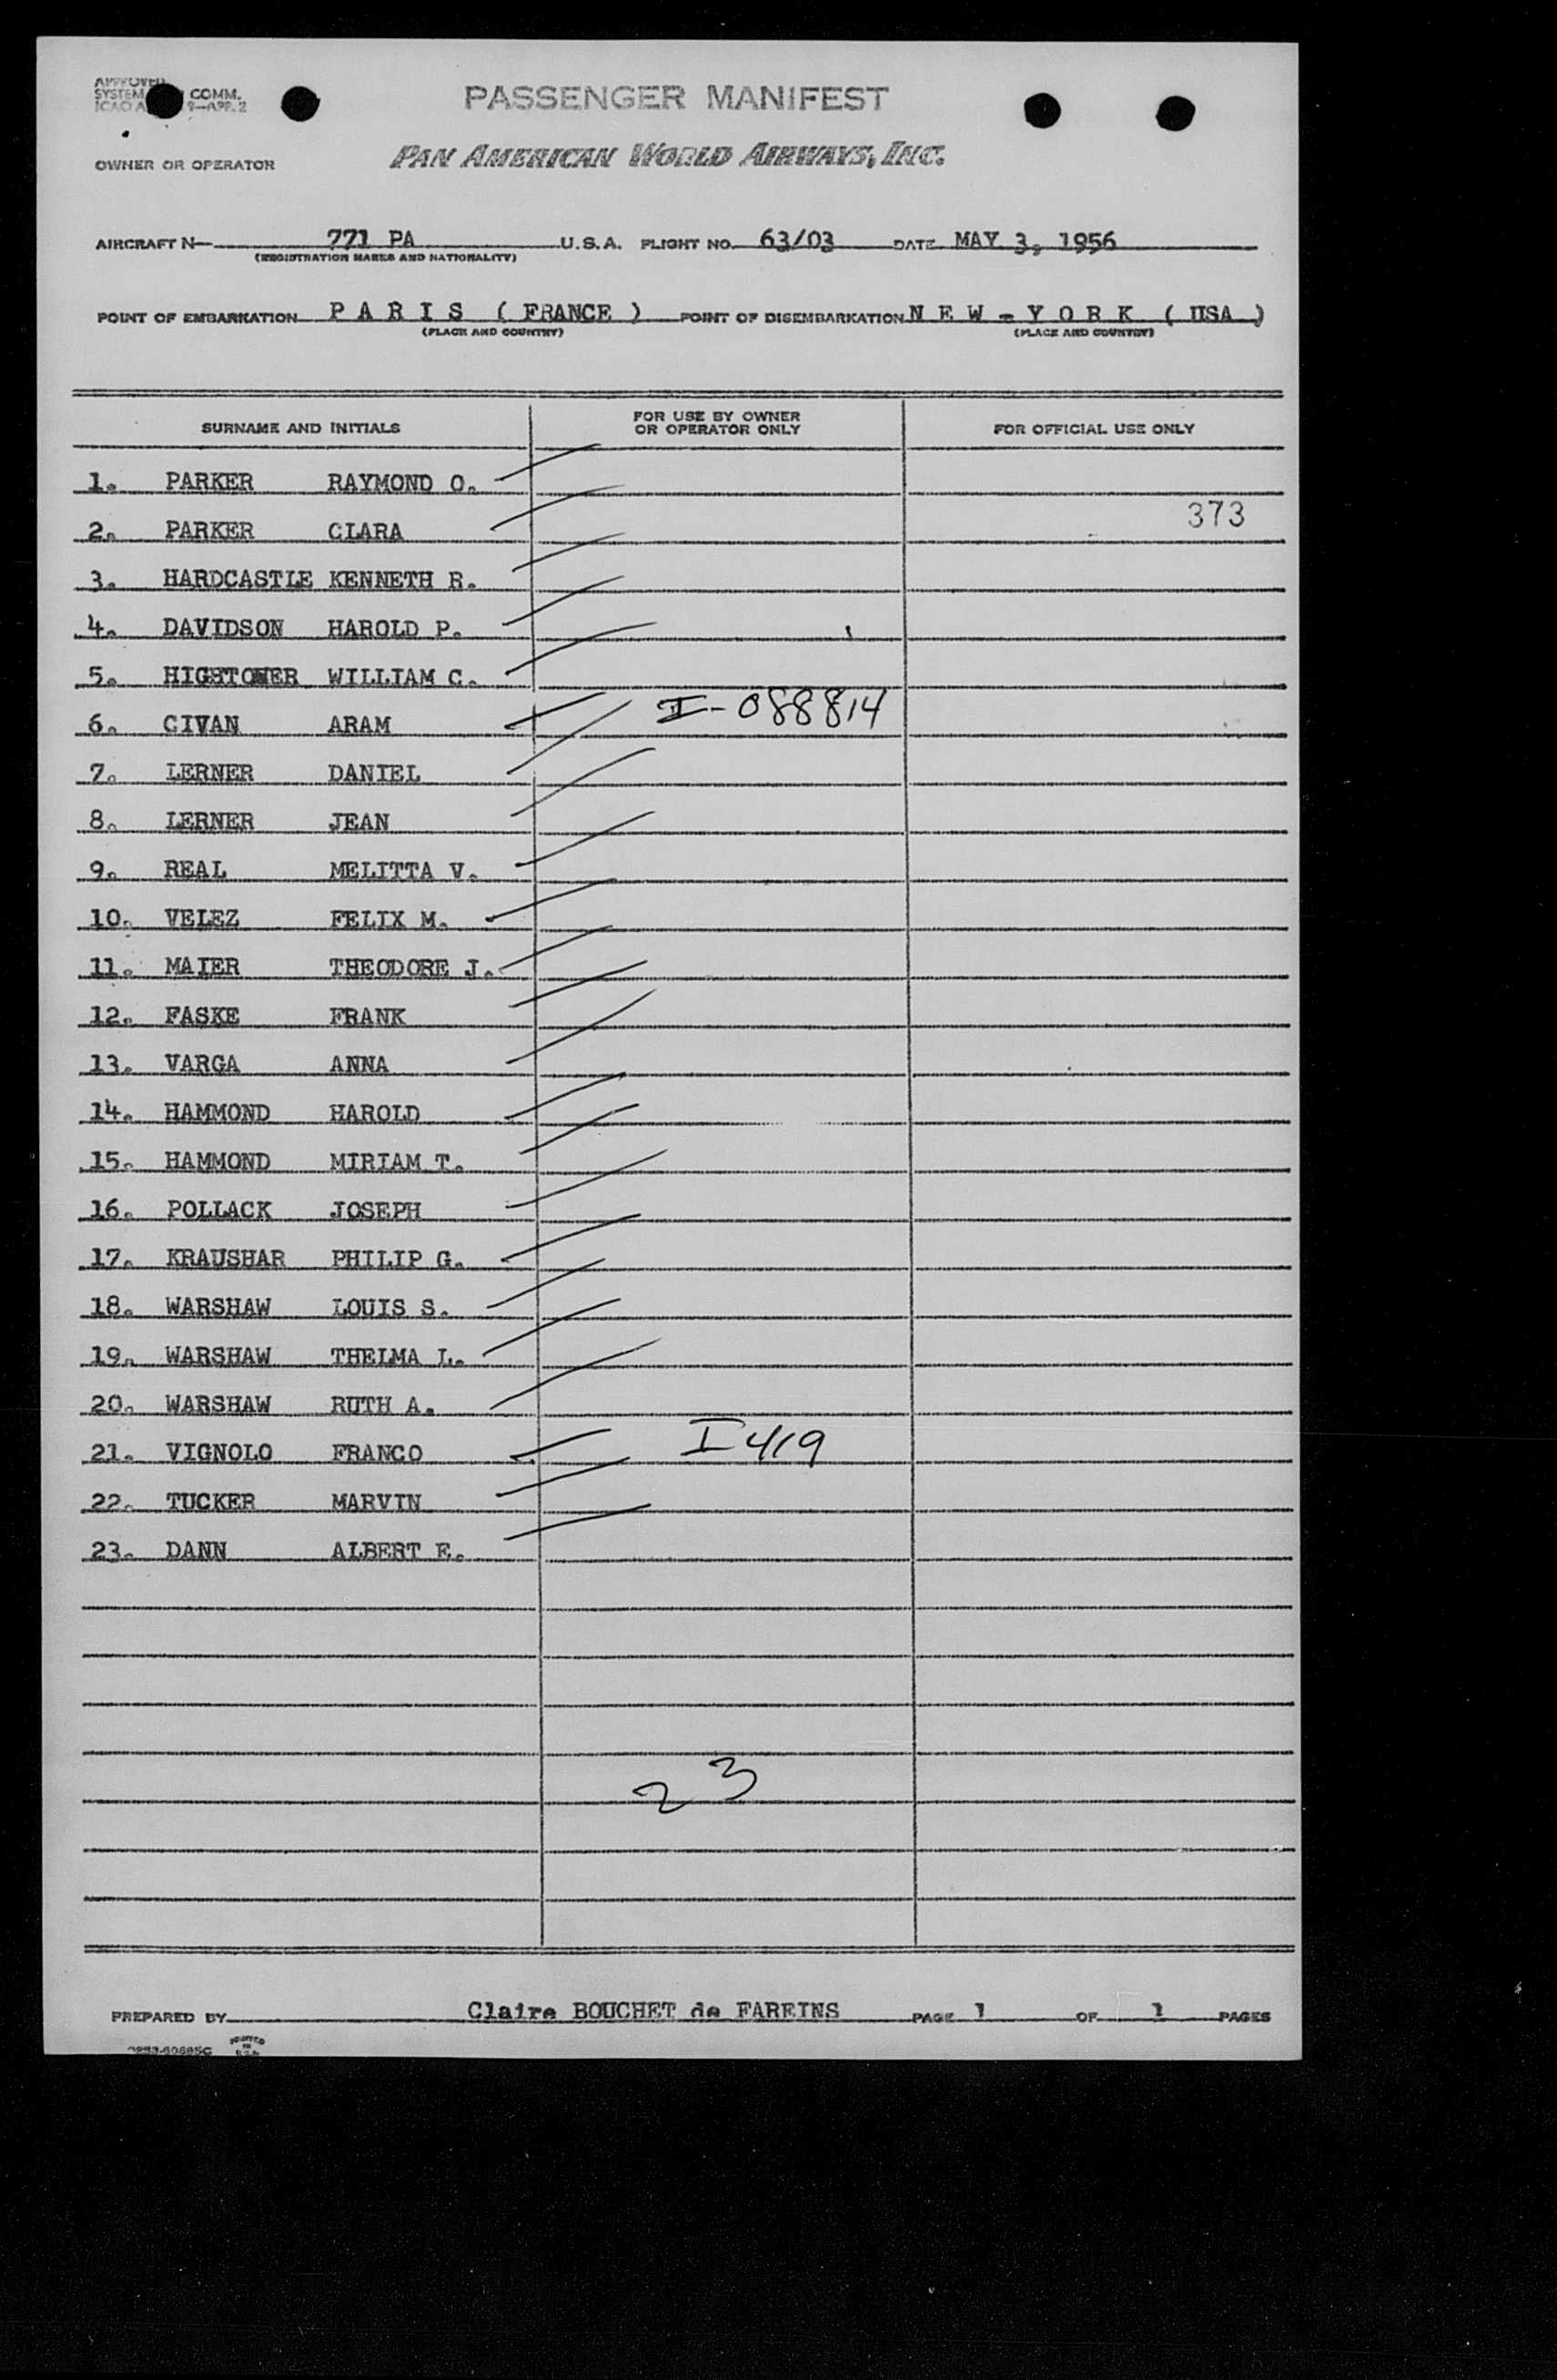 APPROVED
SYSTEM COMM.
ICAO A 9—APP. 2
PASSENGER MANIFEST
OWNER OR OPERATOR PAN AMERICAN WORLD AIRWAYS, INC.
AIRCRAFT N— 771 PA U.S.A. FLIGHT NO. 63/03 DATE MAY 3, 1956
(REGISTRATION MARKS AND NATIONALITY)
POINT OF EMBARKATION P A R I S ( FRANCE ) POINT OF DISEMBARKATION N E W - Y O R K ( USA )
(PLACE AND COUNTRY) (PLACE AND COUNTRY)
SURNAME AND INITIALS FOR USE BY OWNER OR OPERATOR ONLY FOR OFFICIAL USE ONLY
1. PARKER RAYMOND O.
373
2. PARKER CLARA
3. HARDCASTLE KENNETH R.
4. DAVIDSON HAROLD P.
5. HIGHTOWER WILLIAM C.
6. CIVAN ARAM I-088814
7. LERNER DANIEL
8. LERNER JEAN
9. REAL MELITTA V.
10. VELEZ FELIX M.
11. MAIER THEODORE J.
12. FASKE FRANK
13. VARGA ANNA
14. HAMMOND HAROLD
15. HAMMOND MIRIAM T.
16. POLLACK JOSEPH
17. KRAUSHAR PHILIP G.
18. WARSHAW LOUIS S.
19. WARSHAW THELMA L.
20. WARSHAW RUTH A.
21. VIGNOLO FRANCO I 419
22. TUCKER MARVIN
23. DANN ALBERT E.
23
PREPARED BY Claire BOUCHET de FAREINS PAGE 1 OF 1 PAGES
PRINTED IN U.S.A.